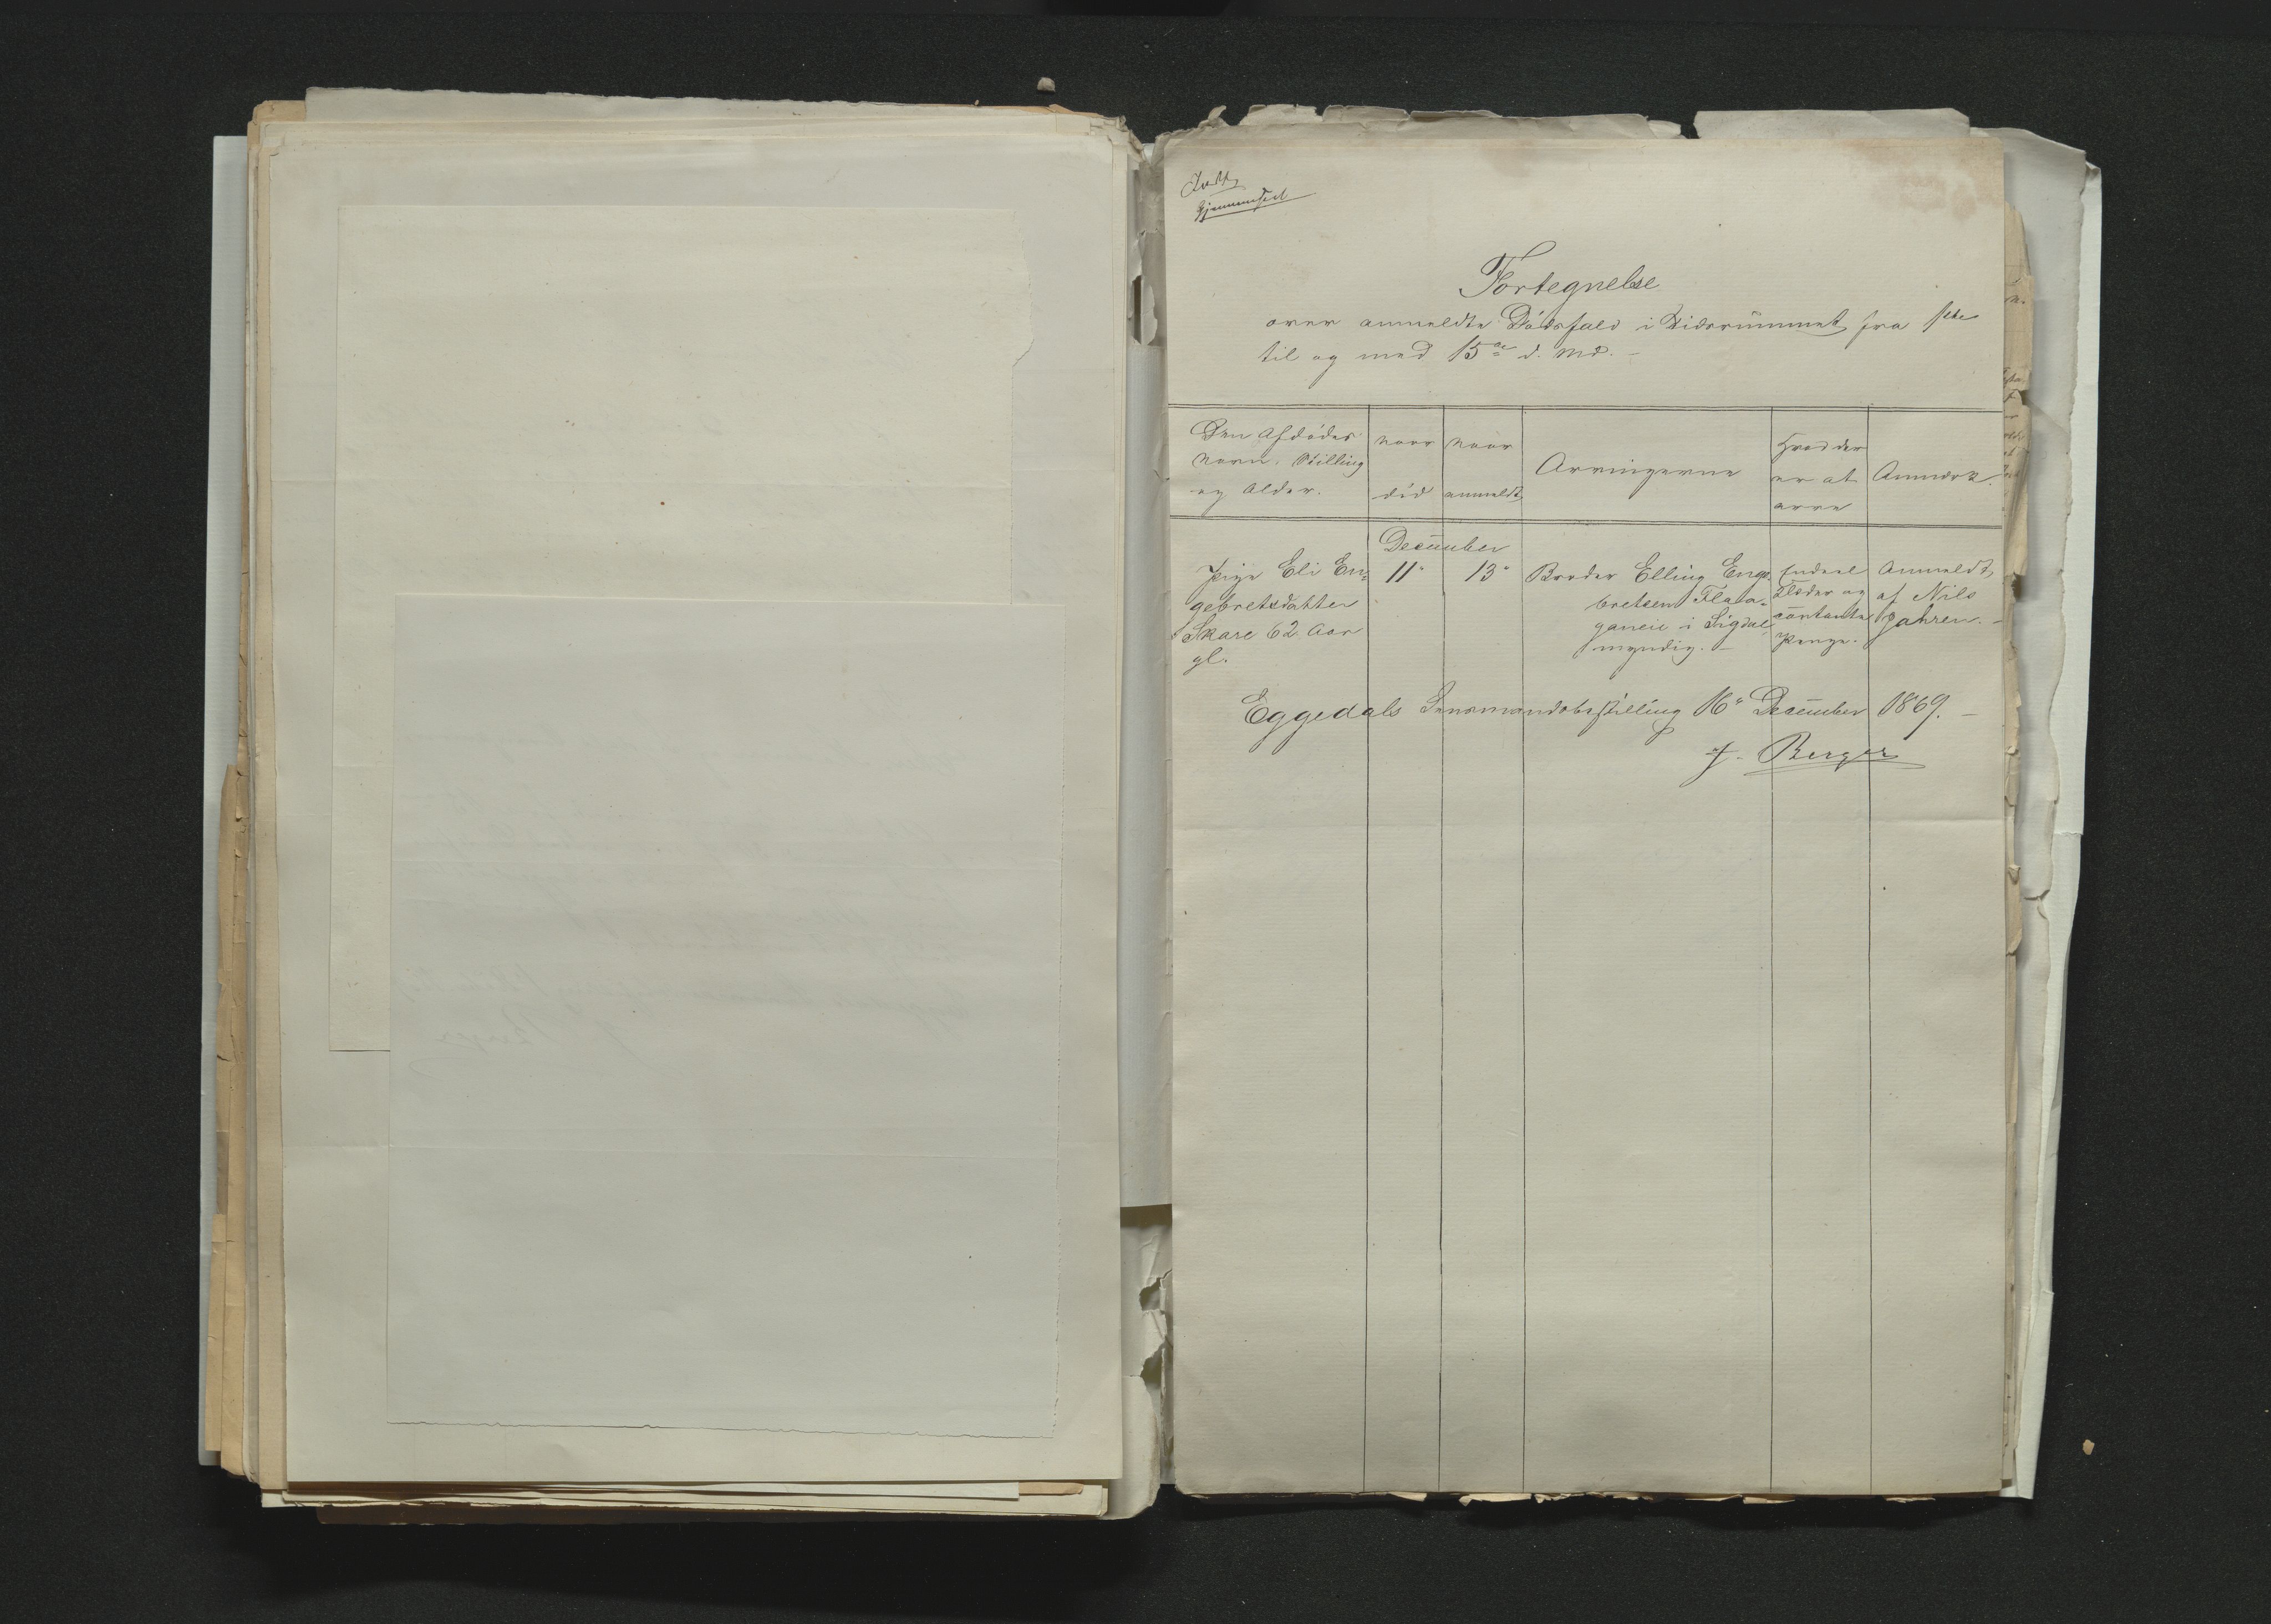 Indt
Gjennemseet
Fortegnelse
over anmeldte Dödsfald i Tidsrummet fra 1ste
til og med 15de d. Md. –
Den Afdödes
Navn, Stilling
og Alder.
naar
död
naar
anmeldt
Arvingerne
Hvad der
er at
arve
Anmærk.
December
Pige Eli En-
gebretsdatter
Skare 62 Aar
gl.
11te
13de
Broder Elling Enge-
bretsen Flaa-
ganeie i Sigdal
myndig. –
Endeel
Klæder og
contante
Penge.
Anmeldt
af Nils
Jahren. –
Eggedals Lensmandsbestilling 16de December 1869. –
J. Berger